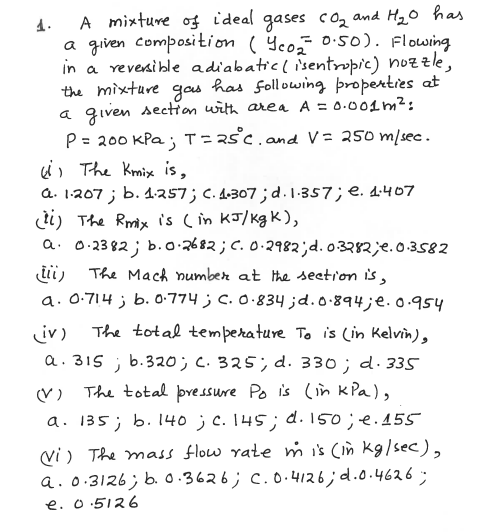 1. A mixture of ideal gases CO2 and H2O has
a given composition ( yCO2 = 0.50). Flowing
in a reversible adiabatic (isentropic) nozzle,
the mixture gas has following properties at
a given section with area A = 0.001m²:
P = 200 KPa ; T = 25°C . and V = 250 m/sec.
(i) The Kmix is,
a. 1.207 ; b. 1.257 ; C. 1.307 ; d. 1.357 ; e. 1.407
(ii) The Rmix is ( in KJ/kg K),
a. 0.2382 ; b. 0.2682 ; C. 0.2982 ; d. 0.3282 ; e. 0.3582
(iii) The Mach number at the section is,
a. 0.714 ; b. 0.774 ; C. 0.834 ; d. 0.894 ; e. 0.954
(iv) The total temperature To is (in Kelvin),
a. 315 ; b. 320 ; C. 325 ; d. 330 ; d. 335
(v) The total pressure Po is (in kPa),
a. 135 ; b. 140 ; C. 145 ; d. 150 ; e. 155
(vi) The mass flow rate ṁ is (in kg/sec),
a. 0.3126 ; b. 0.3626 ; C. 0.4126 ; d. 0.4626 ;
e. 0.5126